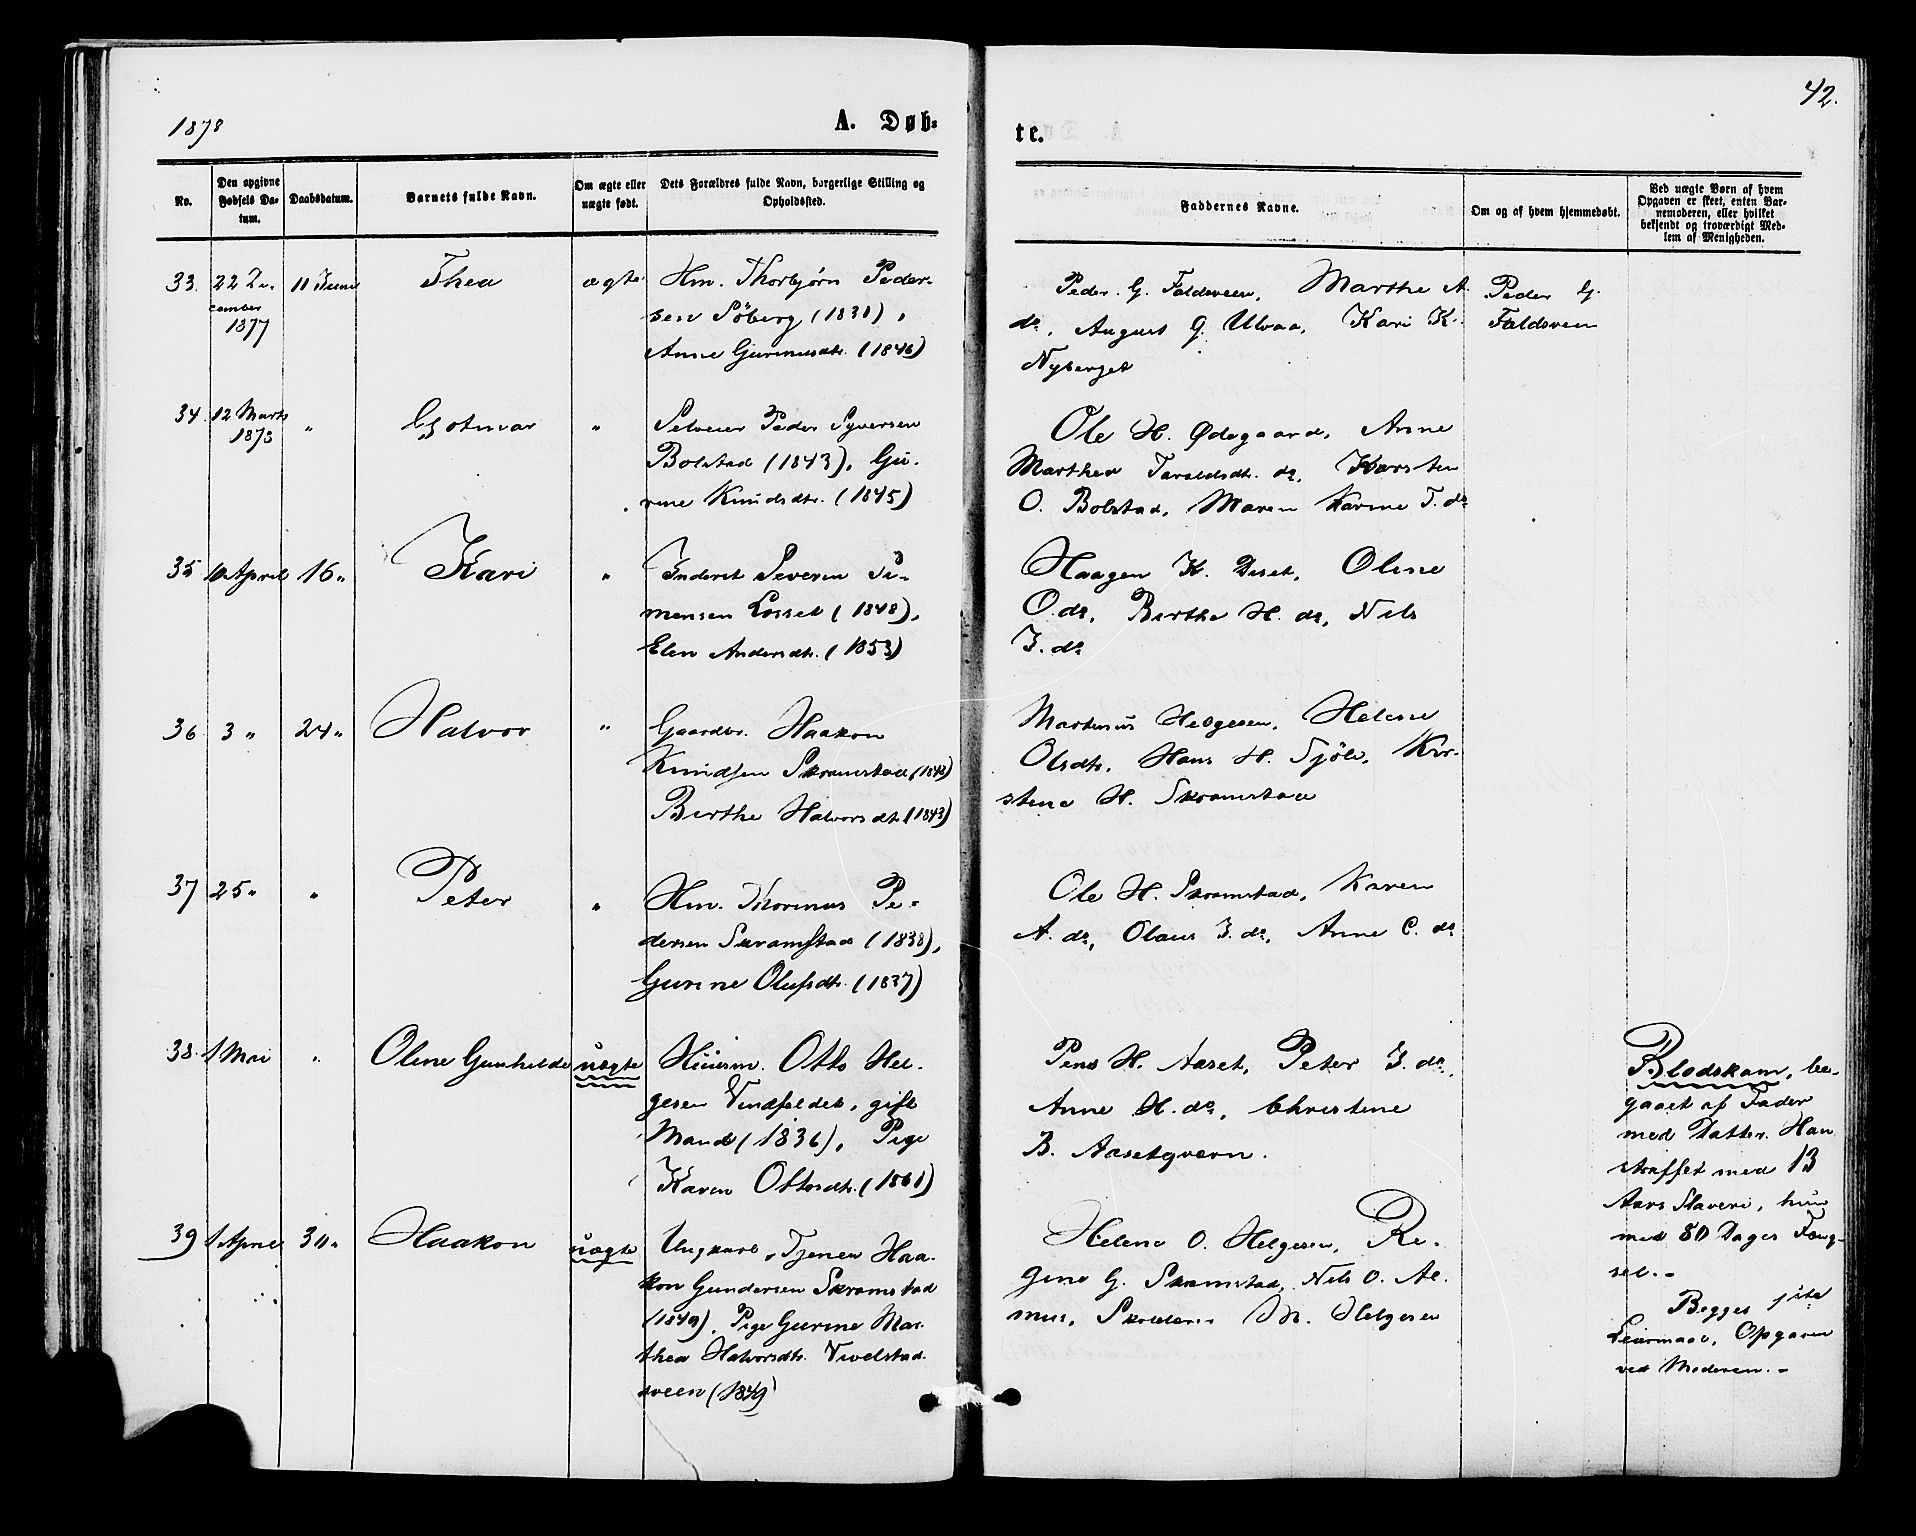 42.
1878
A. Døb-
te.
No.
Den opgivne
Fødsels Da-
tum.
Daabsdatum.
Barnets fulde Navn.
Om ægte eller
uægte født.
Dets Forældres fulde Navn, borgerlige Stilling og
Opholdssted.
Faddernes Navne.
Om og af hvem hjemmedøbt.
Ved uægte Børn af hvem
Opgaven er skeet, enten Bar-
nemoderen, eller hvilket
bekjendt og troværdigt Med-
lem af Menigheden.
33. 22 De-
cember
1877
11 Juni
Thea
ægte
Hm. Thorbjørn Peder-
sen Söberg (1831),
Anne Gurinusdtr. (1846)
Peder G. Faldsveen, Marthe A.
do, August G. Ulvaa, Kari K.
Nyberget
Peder G.
Faldsveen
34. 12 Marts
1878
"
Gotmar
"
Selveier Peder Syversen
Bolstad (1843), Gu-
rine Knudsdtr. (1845)
Ole H. Ødegaard, Anne
Marthea Taraldsdtr. do, Karsten
O. Bolstad, Maren Karine T. do
35 10 April 16 "
Kari
"
Inderst Severin Si-
mensen Losset (1848),
Elen Andersdtr. (1853)
Haagen K. Deset, Oline
O. do, Birthe H. do, Nils
J. do
36 3 " 24 "
Halvor
"
Gaardbr. Haakon
Knudsen Skramstad (1843)
Birthe Halvorsdtr. (1843)
Martinus Helgesen, Helene
Olsdtr., Hans H. Sjöli, Kir-
stine H. Skramstad
37 25 " "
Peter
"
Hm. Thorinus Pe-
dersen Skramstad (1838),
Gurine Olufsdtr. (1837)
Ole H. Skramstad, Karen
A. do, Olaus J. do, Anne C. do
38. 1 Mai "
Oline Gunhilde
uægte
Huusm. Otto Hel-
gesen Vindfaldet, gift
Mand (1836), Pige
Karen Ottosdtr. (1861)
H. Aaset, Peter J. do,
Anne H. do, Christine
B. Aasetqvern.
Blodskam, be-
gaaet af Fader
med Datter. Han
straffet med 13
Aars Slaveri, hun
med 80 Dages Fæng-
sel. -
39 1 April 30 "
Haakon
uægte
Ungkarl, Tjener Haa-
kon Gundersen Skramstad
(1849), Pige Gurine Mar-
thea Halvorsdtr.
sveen (1849)
Helene O. Helgesen, Re-
gine G. Skramstad, Nils O. Al-
mus, M. Helgesen
Begges 1ste
Leiermaal, Opgaven
ved Moderen. -